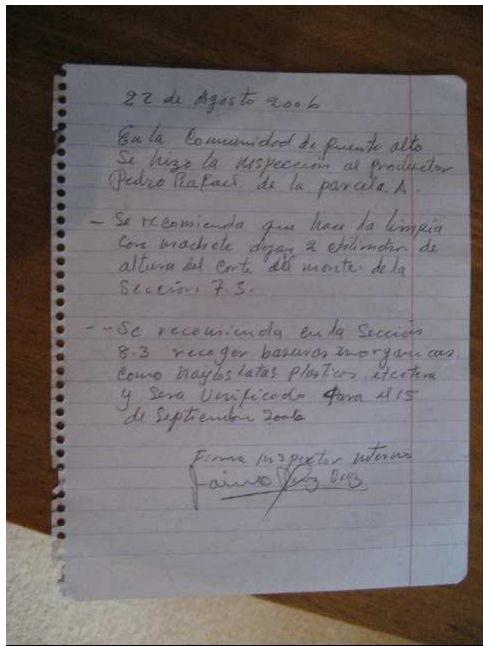 22 de Agosto 2006
En la Comunidad de puente alto
Se hizo la inspección al productor
Pedro Rafael de la parcela. A.
- Se recomienda que hace la limpia
Con machete 2 de
altura del Corte del monte de la
Sección 7.3.
-- Se recomienda en la Sección
8.3 recoger basuras inorganicas.
como latas plasticos. etcetera
y Sera Verificado Para el 15
de Septiembre 2006
Firma Inspector interno
Diaz